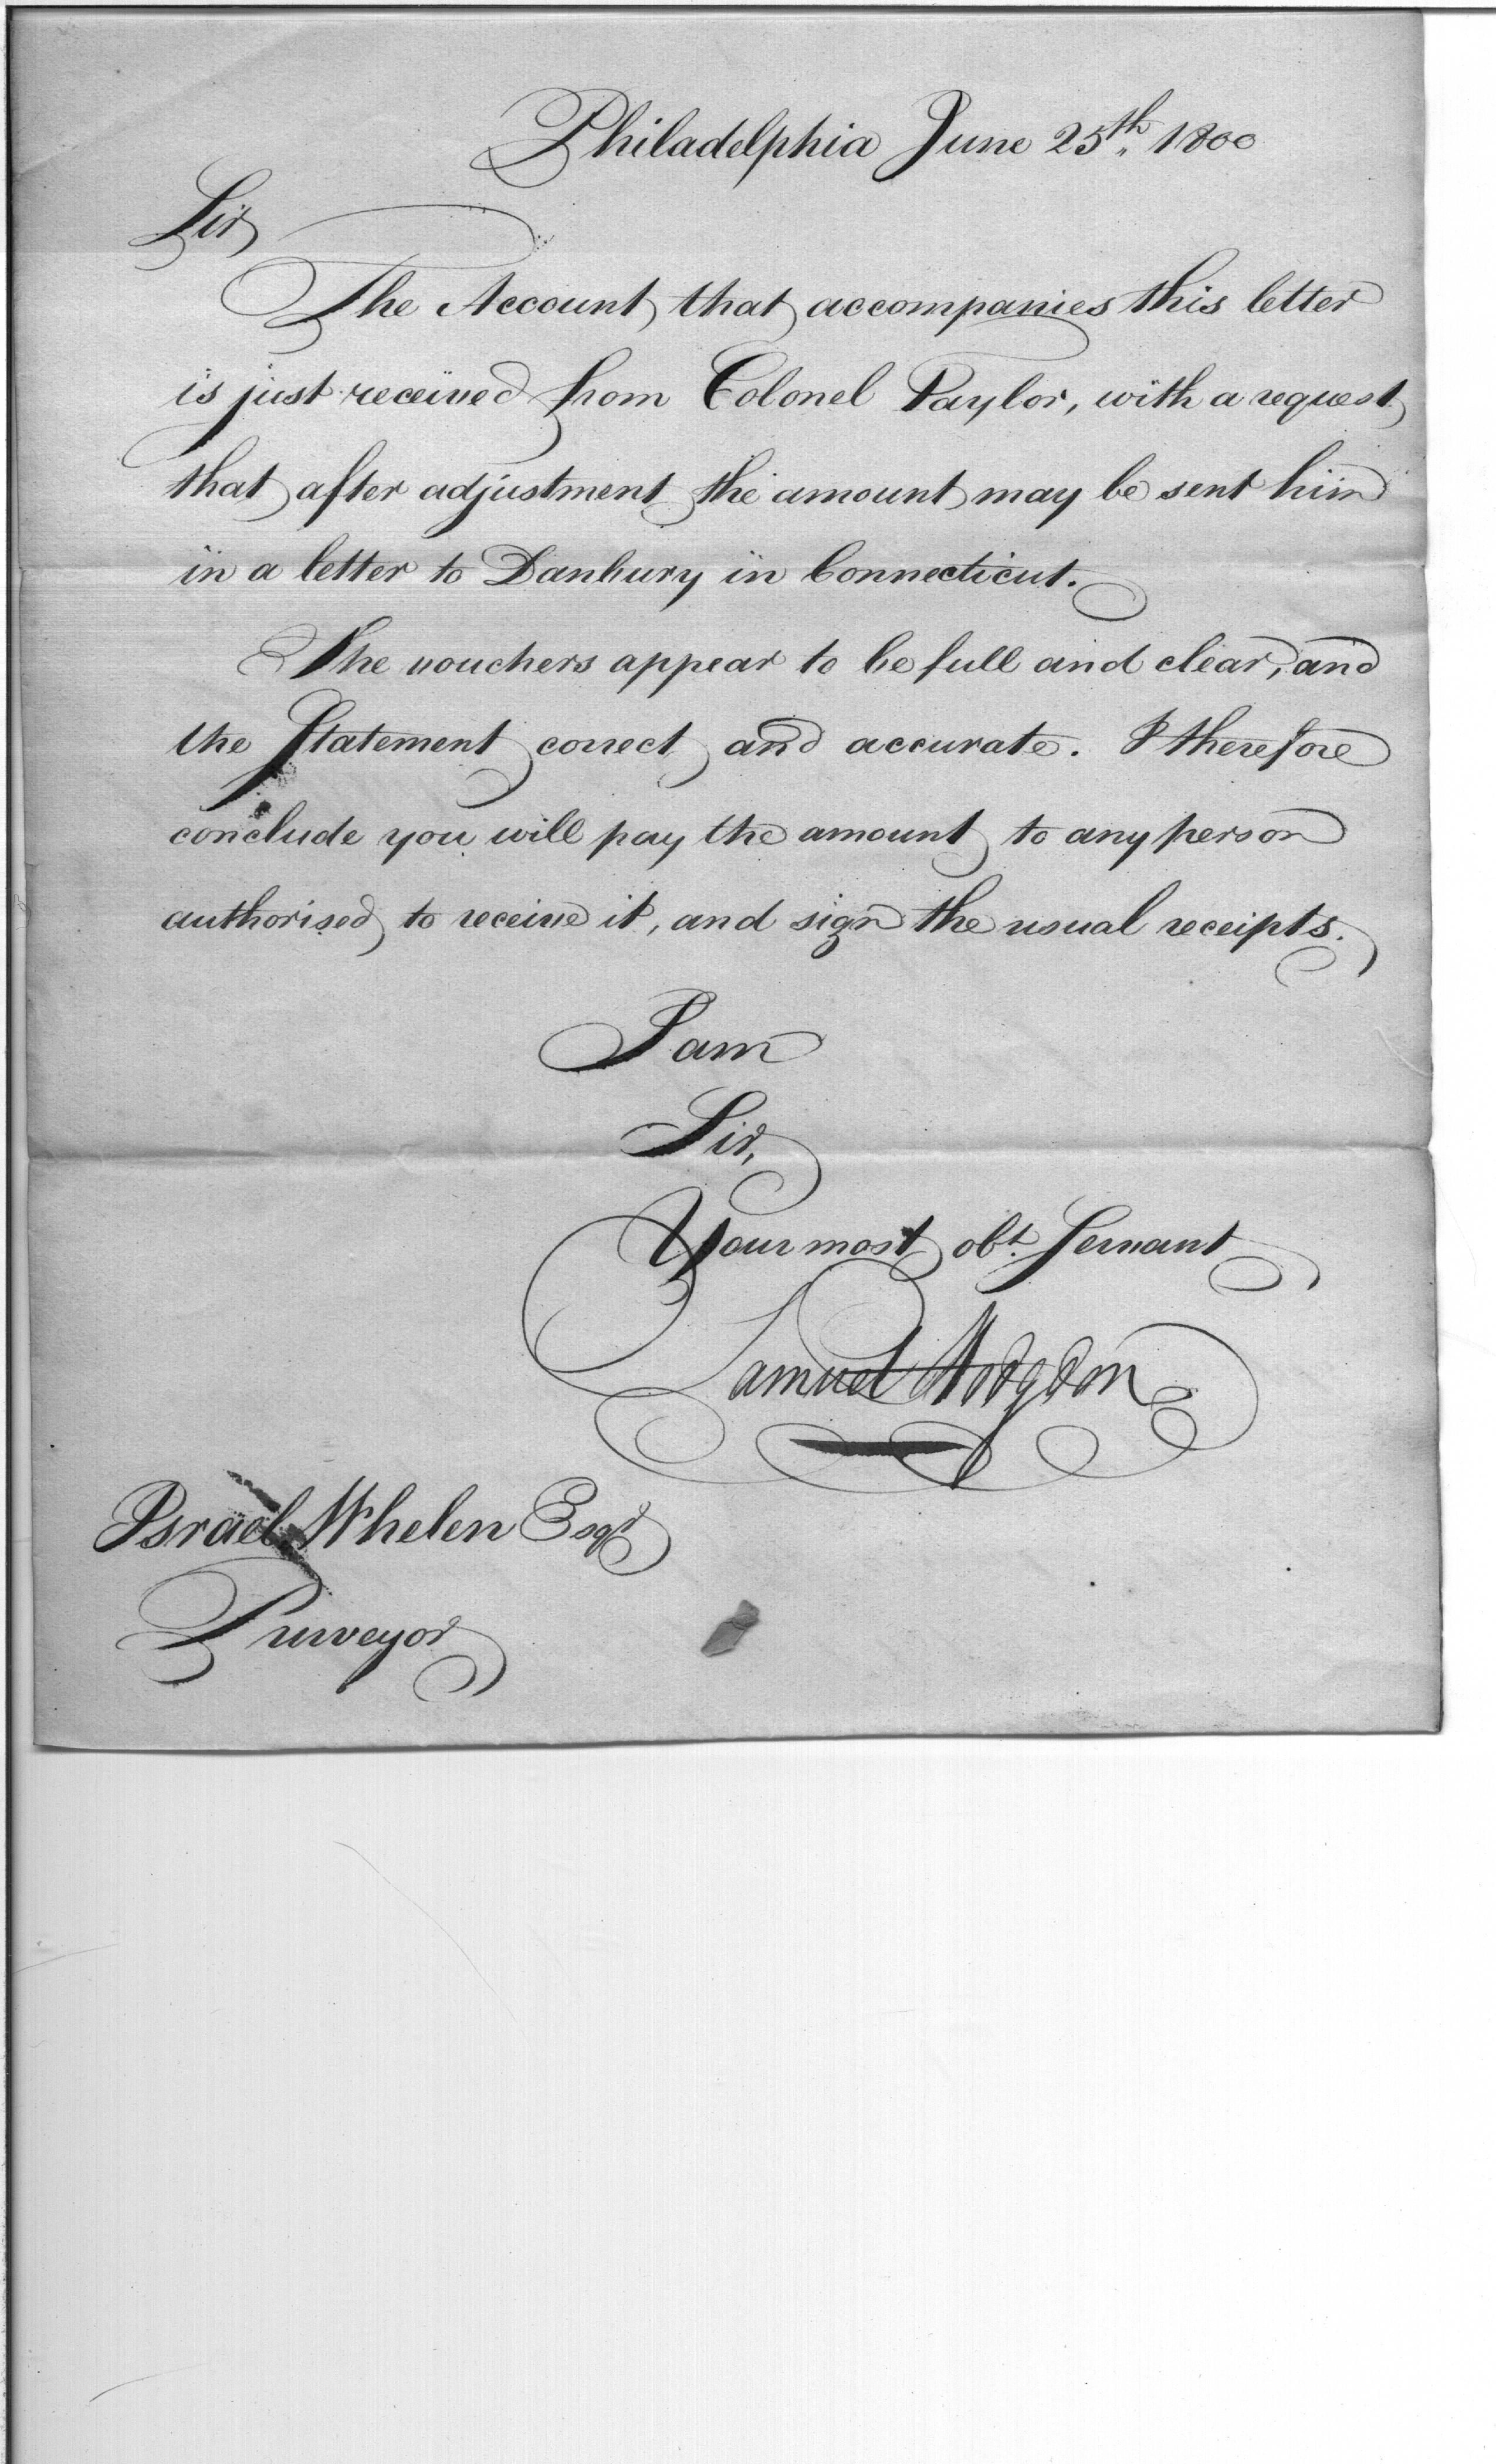 Philadelphia June 25th. 1800
Sir
The Account that accompanies this letter
is just received from Colonel Taylor, with a request
that after adjustment the amount may be sent him
in a letter to Danbury in Connecticut.
The vouchers appear to be full and clear, and
the Statement correct and accurate. I therefore
conclude you will pay the amount to any person
authorised to receive it, and sign the usual receipts.
I am
Sir,
Your most obt. Servant
Samuel Hodgdon
Israel Whelen Esqr
Purveyor